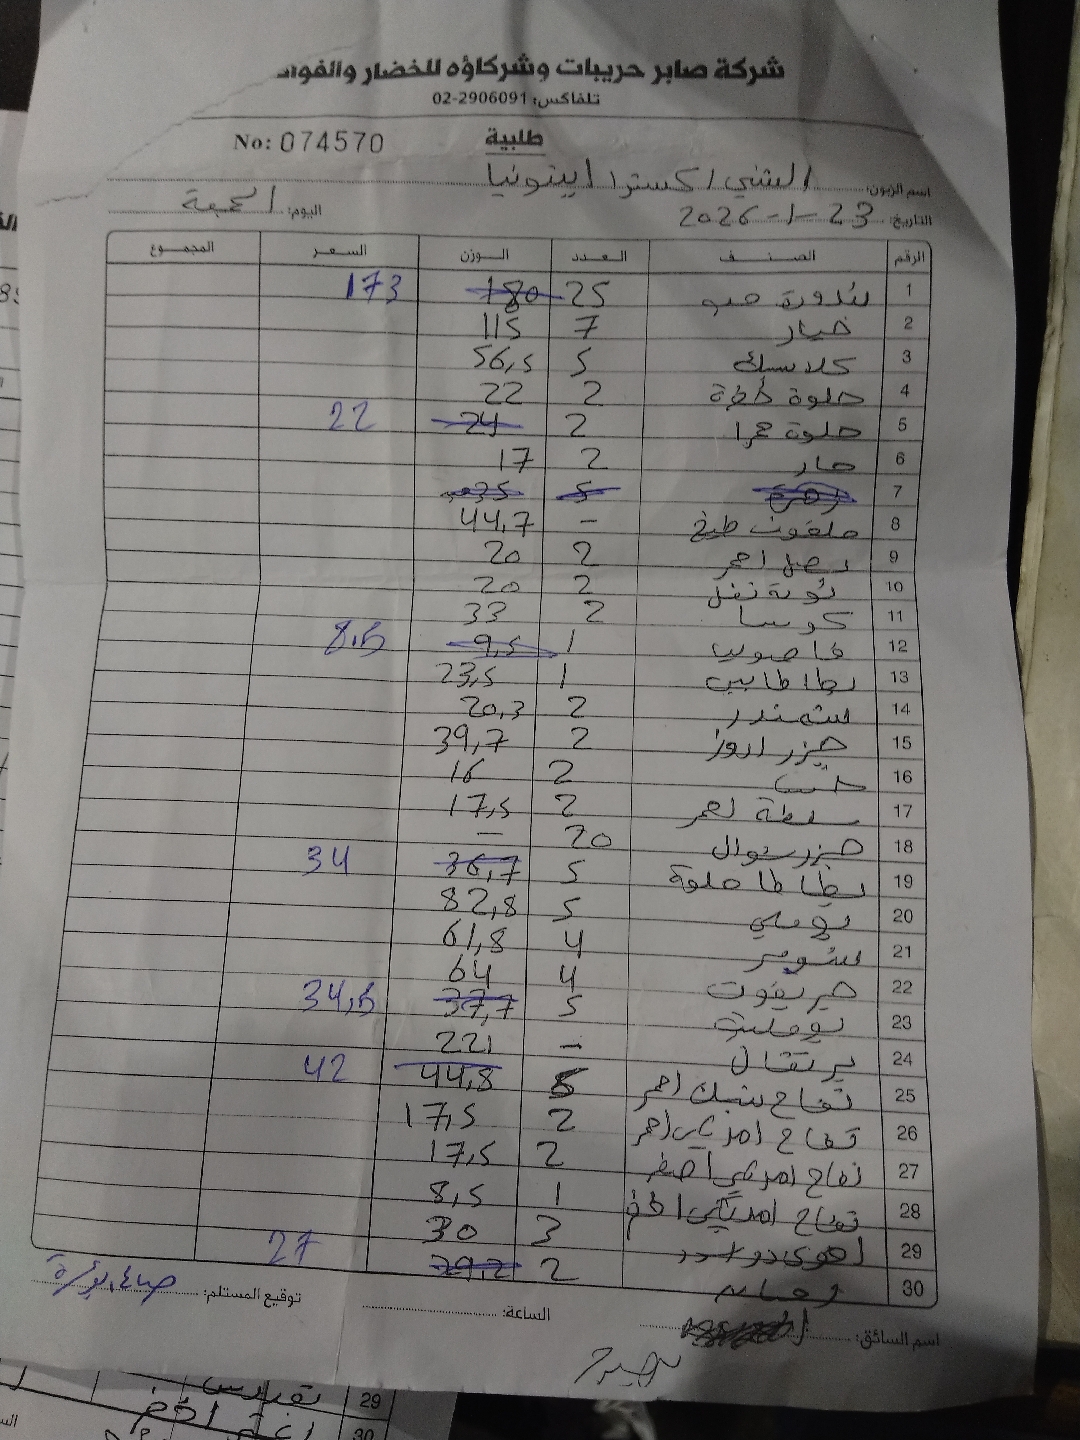 شركة صابر حريبات وشركاؤه للخضار والفواك
تلفاكس: 02-2906091
No: 074570 طلبية
اسم الزبون: الشني اكسترا ابينونيا
التاريخ: 23-1-2026 اليوم: الجمعة
الرقم الصنف العدد الوزن السعر المجموع
1 بندورة حبه 25 180 173
2 خيار 7 115
3 كلاسيك 5 56,5
4 حلوة خضرة 2 22
5 حلوة حمرا 2 24 22
6 حار 2 17
7 زهرة 5 35
8 ملفوف طبخ - 44,7
9 بصل احمر 2 20
10 2 20
11 كوسا 2 33
12 فاصوليا 1 9,5 8,5
13 بطاطا بيبي 1 23,5
14 شمندر 2 20,3
15 جزر اروز 2 39,7
16 2 16
17 سلطة احمر 2 17,5
18 جزر شوال 20 -
19 بطاطا حلوة 5 36,7 34
20 بوملي 5 82,8
21 4 61,8
22 جريفوت 4 64
23 بومليت 5 37,7 34,5
24 برتقال - 221
25 تفاح سنبك احمر 5 44,8 42
26 تفاح امريكي احمر 2 17,5
27 تفاح امريكي اصفر 2 17,5
28 تفاح امريكي اخضر 1 8,5
29 3 30
30 2 29,2 27
توقيع المستلم:
الساعة:
اسم السائق:
29
30